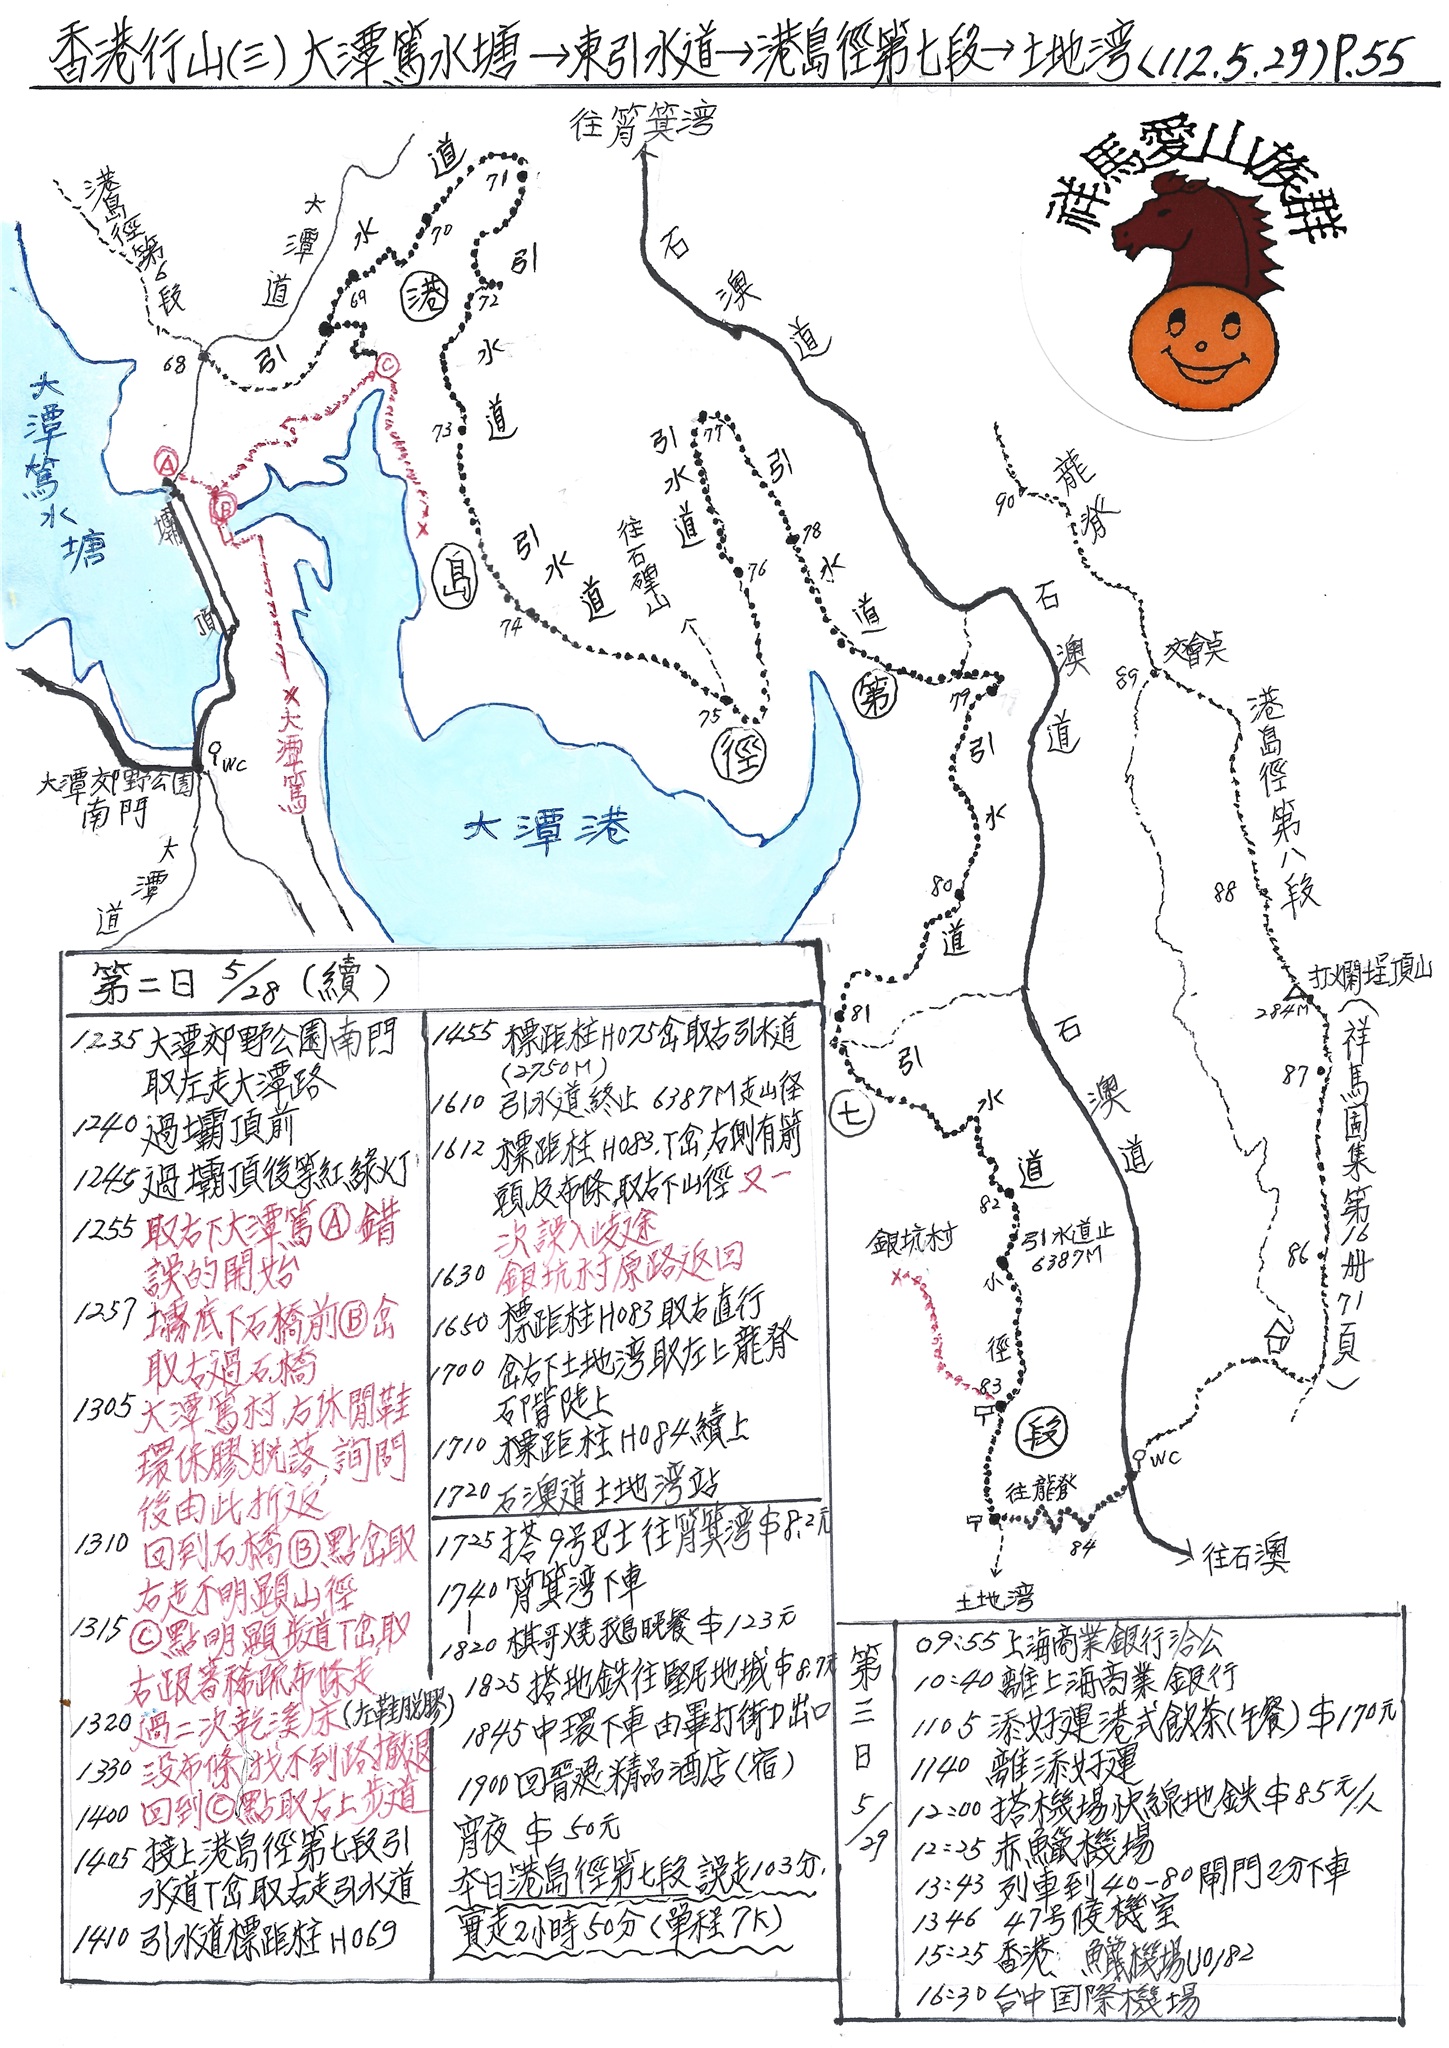 香港行山(三)大潭篤水塘→東引水道→港島徑第七段→土地湾(112.5.29)P.55
祥馬愛山族群
往筲箕湾
港島徑第6段
大潭道
水道
71
70
69
68
港
引水道
72
73
74
75
76
77
78
79
80
81
82
83
84
86
87
88
89
90
石澳道
大潭篤水塘
A
B
C
壩頂
島
引水道
往石碑山
引水道
引水道
第
徑
WC
大潭郊野公園
南門
大潭道
大潭篤
大潭港
龍脊
交會点
港島徑第八段
打爛埕頂山
284M
(祥馬図集第16册71頁)
石澳道
引水道
七
引水道
引水道止
6387M
小徑
銀坑村
段
往龍脊
土地湾
WC
往石澳
第二日 5/28 (續)
1235 大潭郊野公園南門
取左走大潭路
1240 過壩頂前
1245 過壩頂後等紅綠灯
1255 取右下大潭篤Ⓐ錯
誤的開始
1257 壩底下石橋前Ⓑ岔
取右過石橋
1305 大潭篤村,右休閒鞋
環保膠脫落,詢問
後由此折返
1310 回到石橋Ⓑ點岔取
右走不明顯山徑
1315 Ⓒ點明顯步道T岔取
右跟著稀疏布條走
1320 過二次乾溪床(左鞋脫膠)
1330 沒布條找不到路撤退
1400 回到Ⓒ點取右上步道
1405 接上港島徑第七段引
水道T岔取右走引水道
1410 引水道標距柱H069
1455 標距柱H075岔取右引水道
(2750M)
1610 引水道終止 6387M走山径
1612 標距柱H083.T岔,右側有箭
頭及布條,取右下山徑 又一
次誤入歧途
1630 銀坑村原路返回
1650 標距柱H083取右直行
1700 岔右下土地湾取左上龍脊
石階陡上
1710 標距柱H084續上
1720 石澳道土地湾站
1725 搭9号巴士往筲箕湾$8.2元
1740 筲箕湾下車
1820 棋哥燒鵝晚餐$123元
1825 搭地鉄往堅尼地城$8.7元
1845 中環下車由畢打街D出口
1900 回晉逸精品酒店(宿)
宵夜$50元
本日港島徑第七段誤走103分,
實走2小時50分(單程7K)
第三日 5/29
09:55 上海商業銀行洽公
10:40 離上海商業銀行
1105 添好運港式飲茶(午餐)$170元
1140 離添好運
12:00 搭機場快線地鉄$85元/人
12:25 赤鱲機場
13:43 列車到40-80閘門2分下車
1346 47号候機室
15:25 香港 鱲機場UO182
16:30 台中国際機場